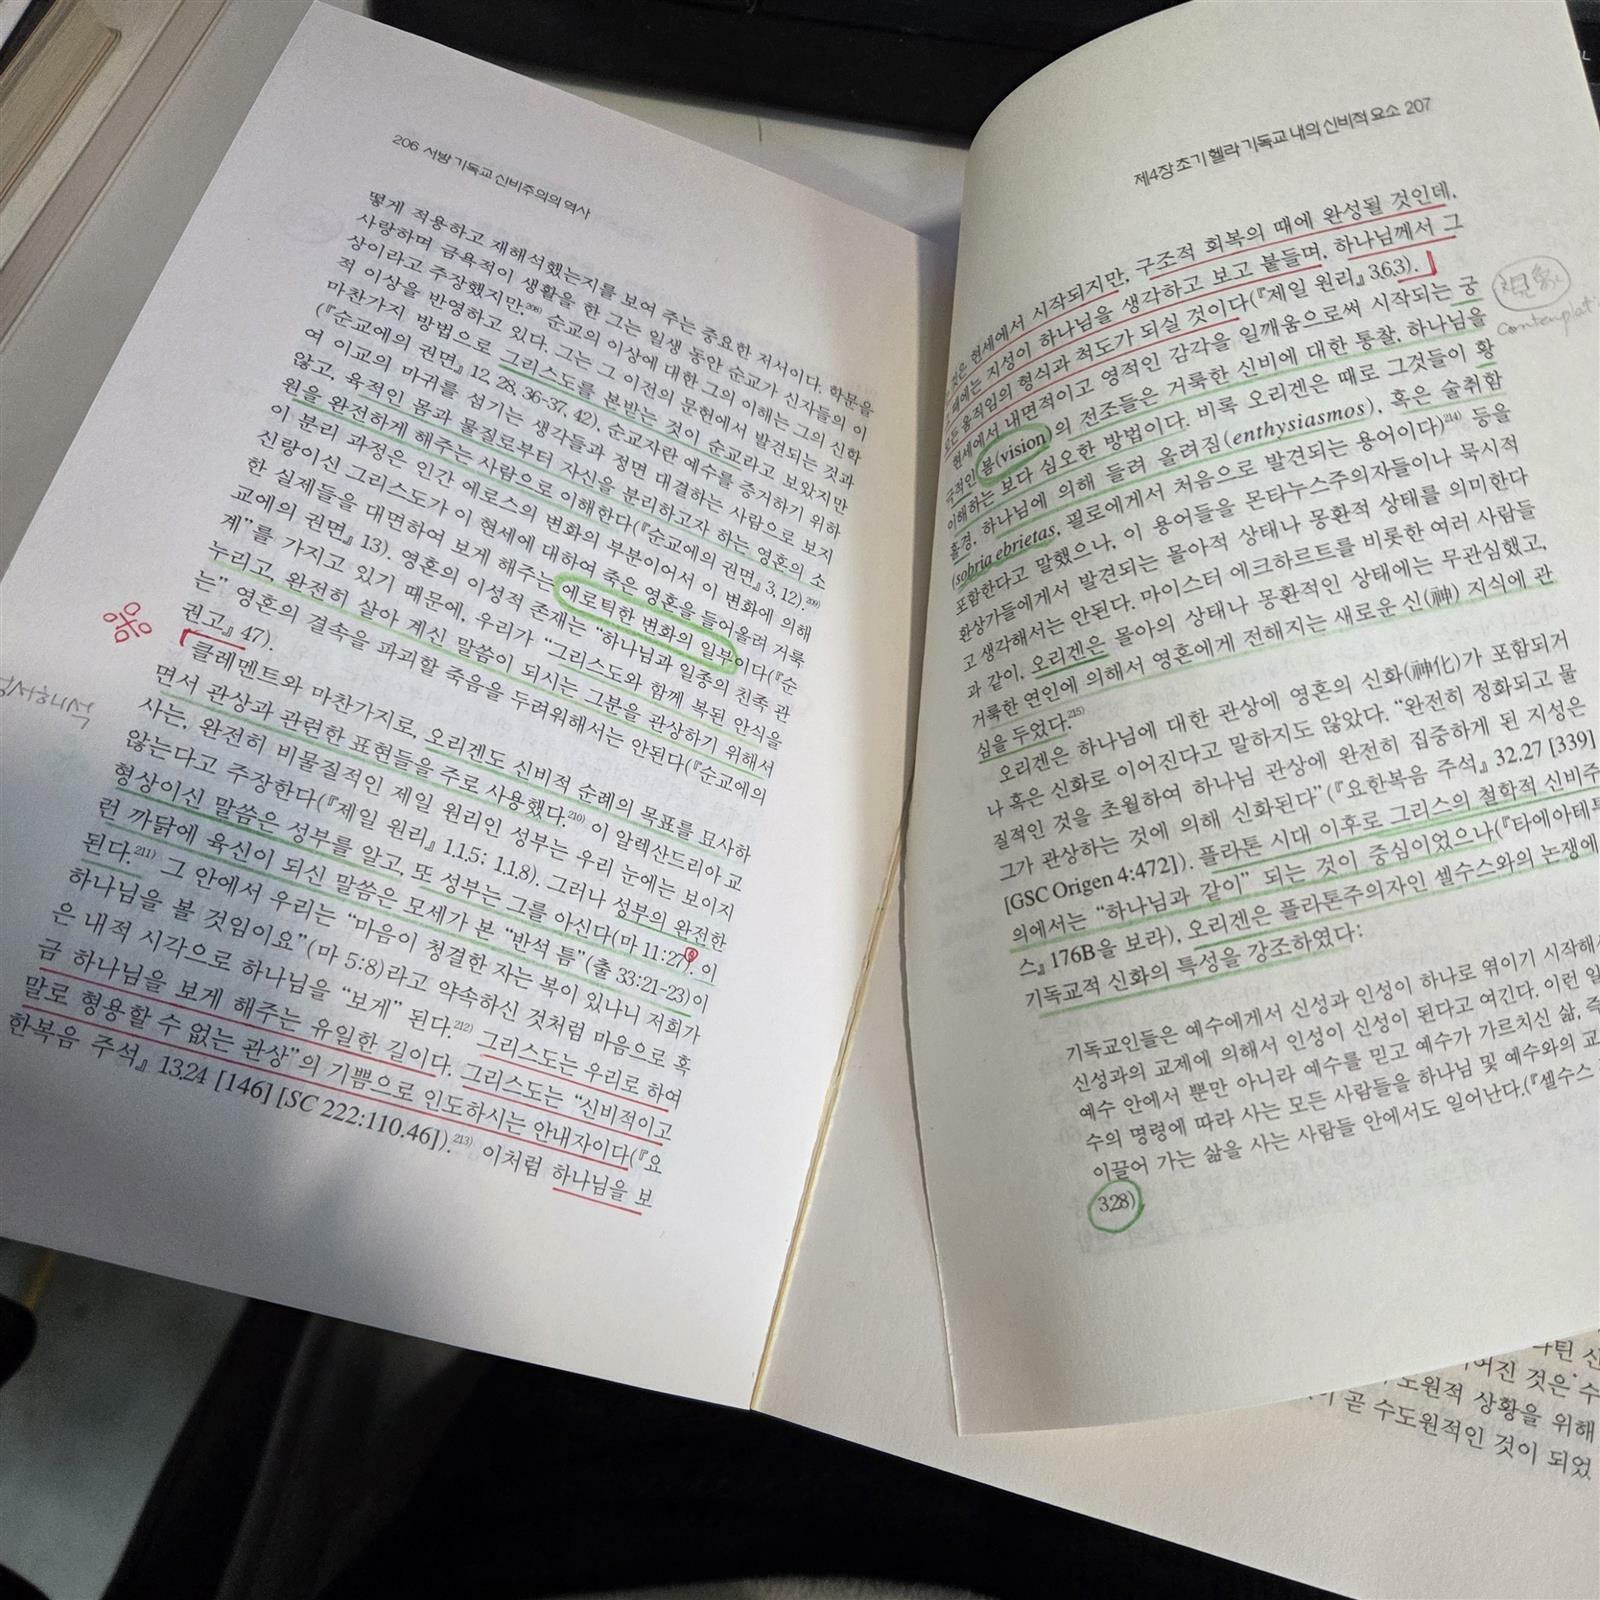 206 서방 기독교 신비주의의 역사
떻게 적용하고 재해석했는지를 보여 주는 중요한 저서이다. 학문을
사랑하며 금욕적이 생활을 한 그는 일생 동안 순교가 신자들의 이
상이라고 주장했지만,208) 순교의 이상에 대한 그의 이해는 그의 신학
적 이상을 반영하고 있다. 그는 그 이전의 문헌에서 발견되는 것과
마찬가지 방법으로 그리스도를 본받는 것이 순교라고 보았지만
(『순교에의 권면』 12, 28, 36-37, 42), 순교자란 예수를 증거하기 위하
여 이교의 마귀를 섬기는 생각들과 정면 대결하는 사람으로 보지
않고, 육적인 몸과 물질로부터 자신을 분리하고자 하는 영혼의 소
원을 완전하게 해주는 사람으로 이해한다(『순교에의 권면』 3, 12).209)
이 분리 과정은 인간 에로스의 변화의 부분이어서 이 변화에 의해
신랑이신 그리스도가 이 현세에 대하여 죽은 영혼을 들어올려 거룩
한 실제들을 대면하여 보게 해주는 에로틱한 변화의 일부이다(『순
교에의 권면』 13). 영혼의 이성적 존재는 “하나님과 일종의 친족 관
계”를 가지고 있기 때문에, 우리가 “그리스도와 함께 복된 안식을
누리고, 완전히 살아 계신 말씀이 되시는 그분을 관상하기 위해서
는” 영혼의 결속을 파괴할 죽음을 두려워해서는 안된다(『순교에의
권고』 47).
클레멘트와 마찬가지로, 오리겐도 신비적 순례의 목표를 묘사하
면서 관상과 관련한 표현들을 주로 사용했다.210) 이 알렉산드리아 교
사는, 완전히 비물질적인 제일 원리인 성부는 우리 눈에는 보이지
않는다고 주장한다(『제일 원리』 1.1.5; 1.1.8). 그러나 성부의 완전한
형상이신 말씀은 성부를 알고, 또 성부는 그를 아신다(마 11:27). 이
런 까닭에 육신이 되신 말씀은 모세가 본 “반석 틈”(출 33:21-23)이
된다.211) 그 안에서 우리는 “마음이 청결한 자는 복이 있나니 저희가
하나님을 볼 것임이요”(마 5:8)라고 약속하신 것처럼 마음으로 혹
은 내적 시각으로 하나님을 “보게” 된다.212) 그리스도는 우리로 하여
금 하나님을 보게 해주는 유일한 길이다. 그리스도는 “신비적이고
말로 형용할 수 없는 관상”의 기쁨으로 인도하시는 안내자이다(『요
한복음 주석』 13.24 [146] [SC 222:110.46]).213) 이처럼 하나님을 보
제4장 초기 헬라 기독교 내의 신비적 요소 207
것은 현세에서 시작되지만, 구조적 회복의 때에 완성될 것인데,
때에는 지성이 하나님을 생각하고 보고 붙들며, 하나님께서 그
모든 움직임의 형식과 척도가 되실 것이다(『제일 원리』 3.6.3).
현세에서 내면적이고 영적인 감각을 일깨움으로써 시작되는 궁
극적인 봄(vision)의 전조들은 거룩한 신비에 대한 통찰, 하나님을
이해하는 보다 심오한 방법이다. 비록 오리겐은 때로 그것들이 황
홀경, 하나님에 의해 들려 올려짐(enthysiasmos), 혹은 술취함
(sobria ebrietas, 필로에게서 처음으로 발견되는 용어이다)214) 등을
포함한다고 말했으나, 이 용어들을 몬타누스주의자들이나 묵시적
환상가들에게서 발견되는 몰아적 상태나 몽환적 상태를 의미한다
고 생각해서는 안된다. 마이스터 에크하르트를 비롯한 여러 사람들
과 같이, 오리겐은 몰아의 상태나 몽환적인 상태에는 무관심했고,
거룩한 연인에 의해서 영혼에게 전해지는 새로운 신(神) 지식에 관
심을 두었다.215)
오리겐은 하나님에 대한 관상에 영혼의 신화(神化)가 포함되거
나 혹은 신화로 이어진다고 말하지도 않았다. “완전히 정화되고 물
질적인 것을 초월하여 하나님 관상에 완전히 집중하게 된 지성은
그가 관상하는 것에 의해 신화된다”(『요한복음 주석』 32.27 [339]
[GSC Origen 4:472]). 플라톤 시대 이후로 그리스의 철학적 신비주
의에서는 “하나님과 같이” 되는 것이 중심이었으나(『타에아테투
스』 176B을 보라), 오리겐은 플라톤주의자인 셀수스와의 논쟁에
기독교적 신화의 특성을 강조하였다:
기독교인들은 예수에게서 신성과 인성이 하나로 엮이기 시작해서
신성과의 교제에 의해서 인성이 신성이 된다고 여긴다. 이런 일
예수 안에서 뿐만 아니라 예수를 믿고 예수가 가르치신 삶, 즉
수의 명령에 따라 사는 모든 사람들을 하나님 및 예수와의 교
이끌어 가는 삶을 사는 사람들 안에서도 일어난다.(『셀수스
3.28)
contemplat
틴 신
어진 것은 수
도원적 상황을 위해
곧 수도원적인 것이 되었